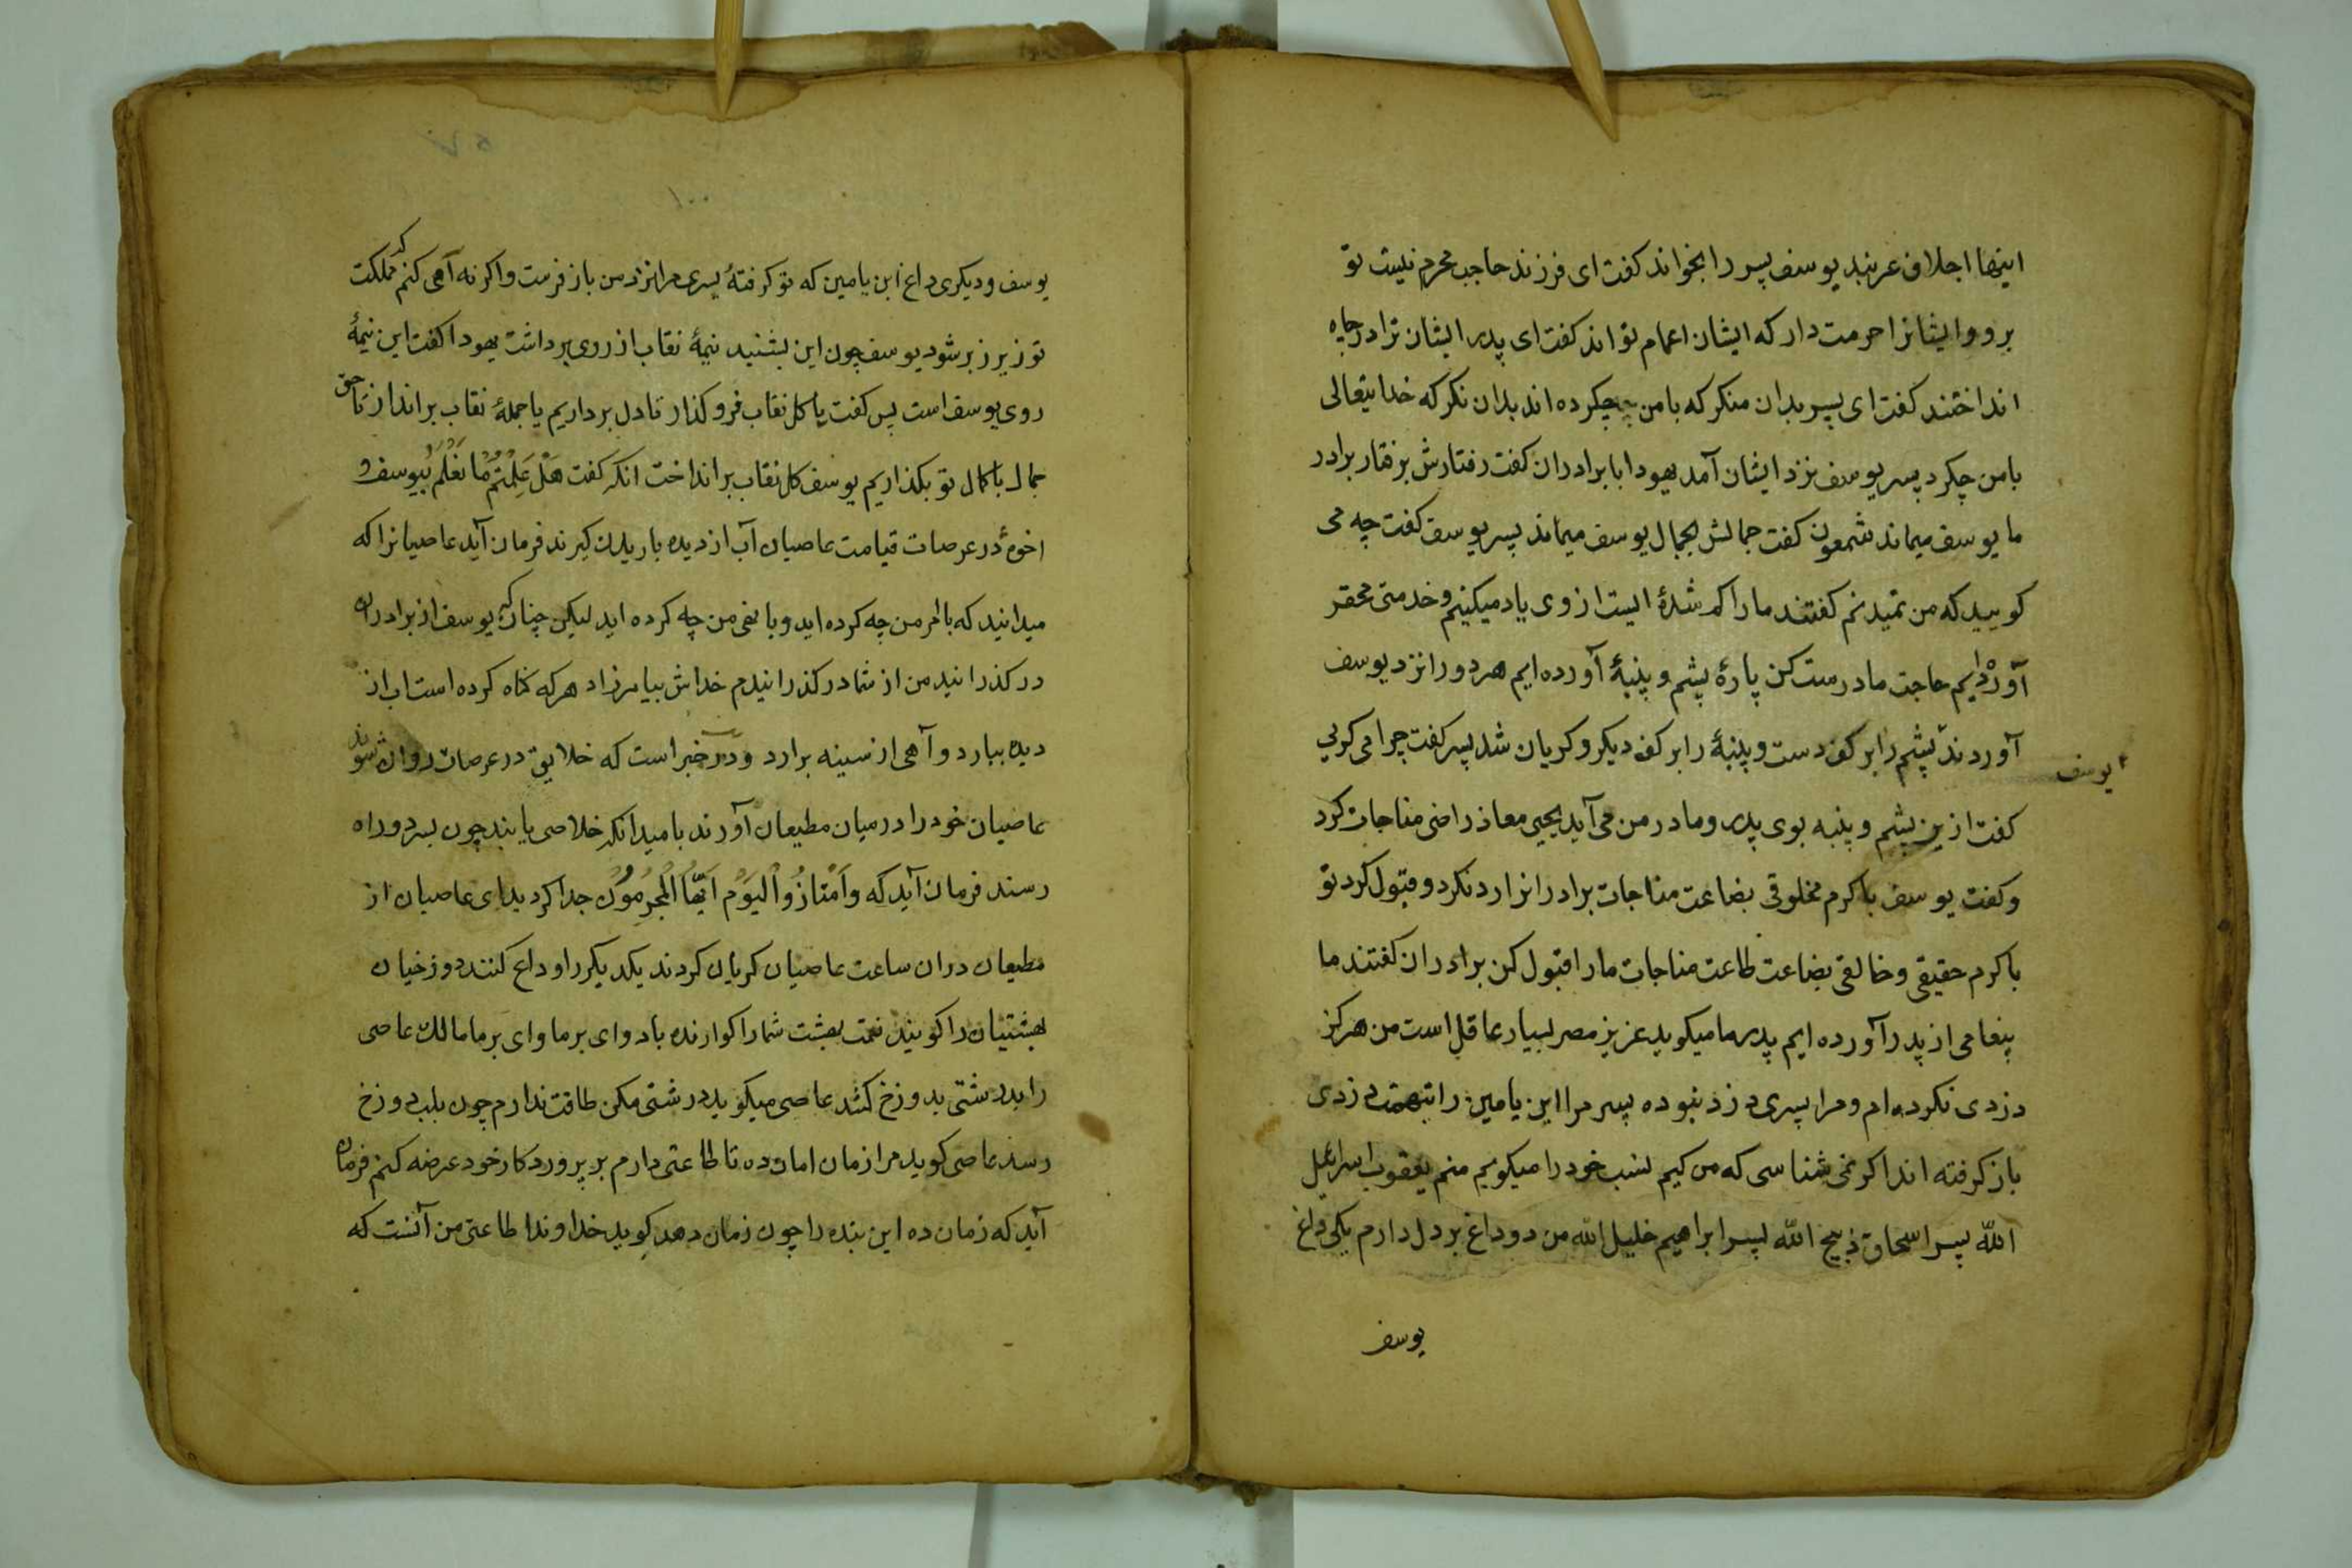 اینها اجلاف عربند یوسف پسر را بخواند کفت ای فرزند حاجب محرم نیست تو
برو و ایشانرا حرمت دار که ایشان اعمام تواند کفت ای پدر ایشان ترا در چاه
انداختند کفت ای پسر بدان منکر که با من چکرده اند بدان نکر که خدایتعالی
با من چکرد پسر یوسف نزد ایشان آمد یهودا با برادران کفت رفتارش برفتار برادر
ما یوسف میماند شمعون کفت جمالش بجمال یوسف میماند پسر یوسف کفت چه می
کویید که من نمیدنم کفتند ما را کم شدهٔ ایست از وی یاد میکنیم و خدمتی محقر
آورده ایم حاجت ما درست کن پارهٔ پشم و پنبهٔ آورده ایم هر دو را نزد یوسف
آوردند پشم را بر کف دست و پنبهٔ را بر کف دیکر و کریان شد پسر کفت چرا می کریی
یوسف
کفت ازین پشم و پنبه بوی پدر و مادر من می آید یحیی معاذ راضی مناجات کرد
و کفت یوسف با کرم مخلوقی بضاعت مناجات برادرانرا رد نکرد و قبول کرد تو
با کرم حقیقی و خالقی بضاعت طاعت مناجات ما را قبول کن برادران کفتند ما
پیغامی از پدر آورده ایم پدر ما میکوید عزیز مصر بسیار عاقل است من هرکز
دزدی نکرده ام و مرا پسری دزد نبوده پسر مرا ابن یامین را بتهمت دزدی
باز کرفته اند اکر نمی شناسی که من کیم نسب خود را میکویم منم یعقوب اسرائیل
الله پسر اسحاق ذبیح الله پسر ابراهیم خلیل الله من دو داغ بر دل دارم یکی داغ
یوسف
۱۰۰
یوسف و دیکری داغ ابن یامین که تو کرفتهٔ پسری مرا نزد من باز فرست و اکر نه آهی کنم که مملکت
تو زیر زبر شود یوسف چون این بشنید نیمهٔ نقاب از روی برداشت یهودا کفت این نیمهٔ
روی یوسف است پس کفت یا کل نقاب فرو کذار تا دل برداریم یا جملهٔ نقاب برانداز تا حق
جمال با کمال تو بکذاریم یوسف کل نقاب برانداخت انکه کفت هَلْ عَلِمْتُمْ مٰا فَعَلْتُمْ بیوسف و
اخوهٔ در عرصات قیامت عاصیان آب از دیده باریدن کیرند فرمان آید عاصیانرا که
میدانید که با امر من چه کرده اید و با نهی من چه کرده اید لیکن چنان که یوسف از برادران
در کذرانید من از شما در کذرانیدم خداش بیامرزاد هر که کناه کرده است اب از
دیده ببارد و آهی از سینه برارد و در خبر است که خلایق در عرصات روان شوند
عاصیان خود را در میان مطیعان آورند بامید انکه خلاصی یابند چون بسر دو راه
رسند فرمان آید که وَاَمْتٰازُوا الْیَوْمَ اَیُّهَا الْمُجْرِمُوُن جدا کردید ای عاصیان از
مطیعان دران ساعت عاصیان کریان کردند یکدیکر را وداع کنند دوزخیان
بهشتیان را کویند نعمت بهشت شما را کوارنده باد و ای بر ما وای بر ما مالک عاصی
را بدرشتی بدوزخ کشد عاصی میکوید درشتی مکن طاقت ندارم چون بلب دوزخ
رسد عاصی کوید مرا زمان امان ده تا طاعتی دارم بر پروردکار خود عرضه کنم فرمان
آید که زمان ده این بنده را چون زمان دهد کوید خداوندا طاعتی من آنست که